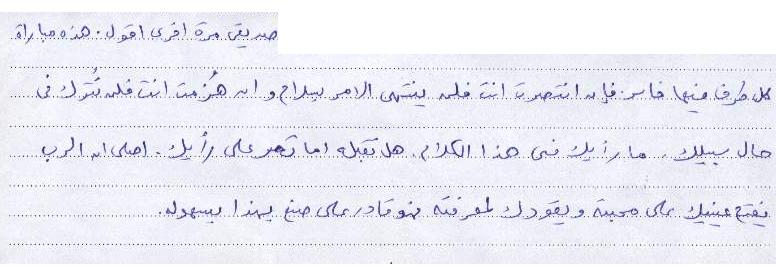 صديقى مرة اخرى اقول. هذه مباراة
كل طرف فيها خاسر فإن انتصرت انت فلن ينتهى الامر بسلام و ان هُزمت انت فلن تُترك فى
حال سبيلك. ما رأيك فى هذا الكلام. هل تقبله اما تصر على رأيك. اصلى ان الرب
يفتح عينيك على محبته و يقودك لمعرفته فهو قادر على صنع هذا بسهوله.